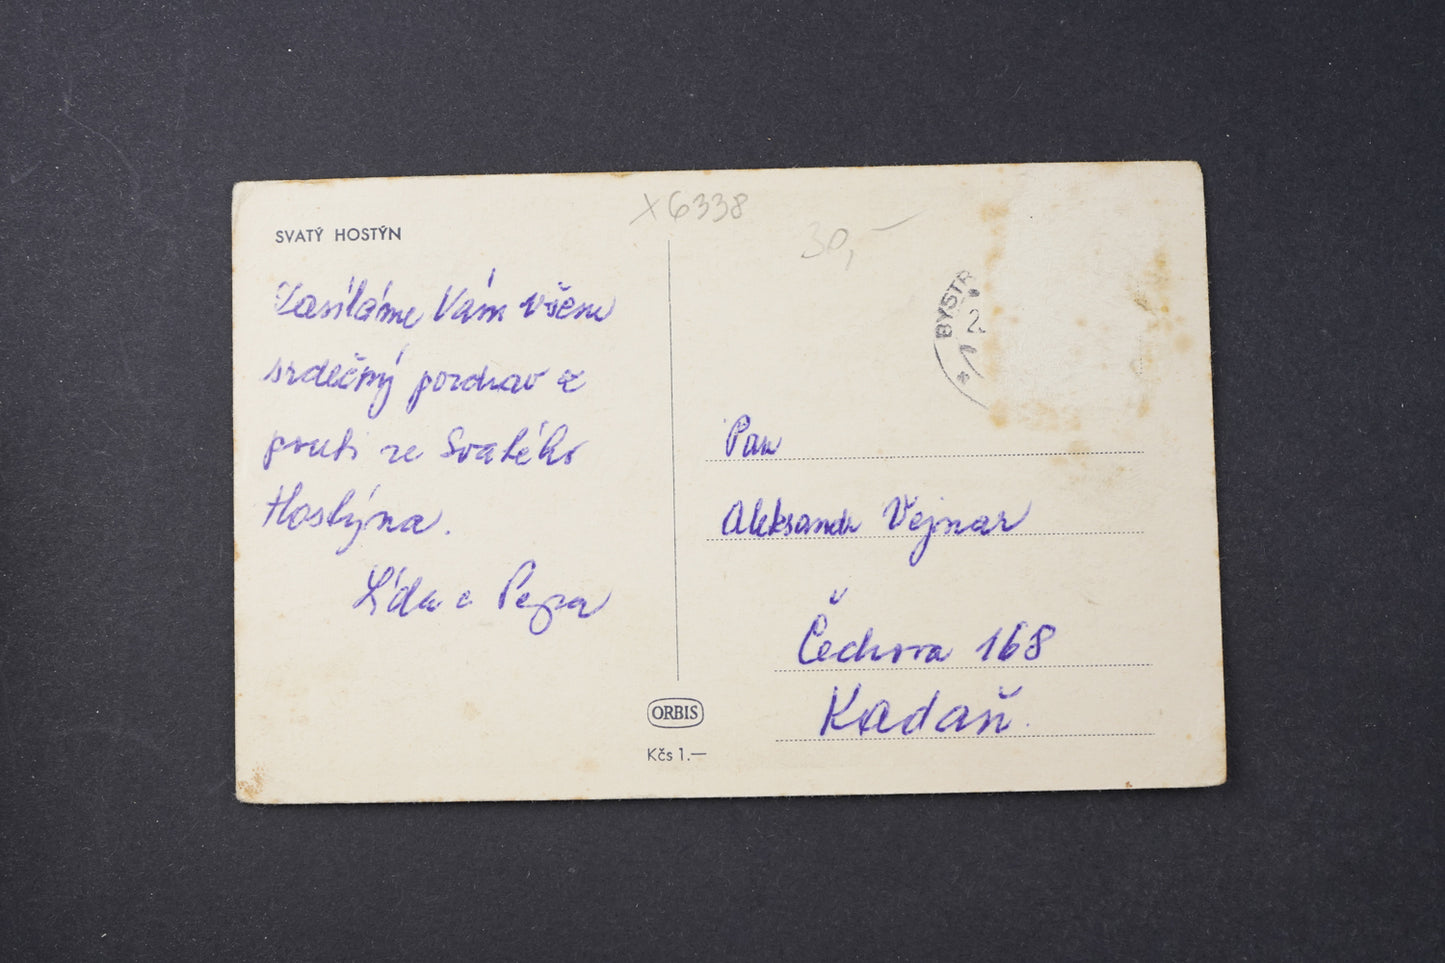 SVATÝ HOSTÝN
X6338
30,-
BYSTŘ
2
Zasíláme Vám všem
srdečný pozdrav z
pouti ze Svatého
Hostýna.
Lída a
Pan
Aleksandr Vejnar
Čechova 168
Kadaň.
ORBIS
Kčs 1.—